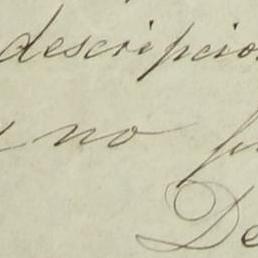 descripcio
y no fu
De